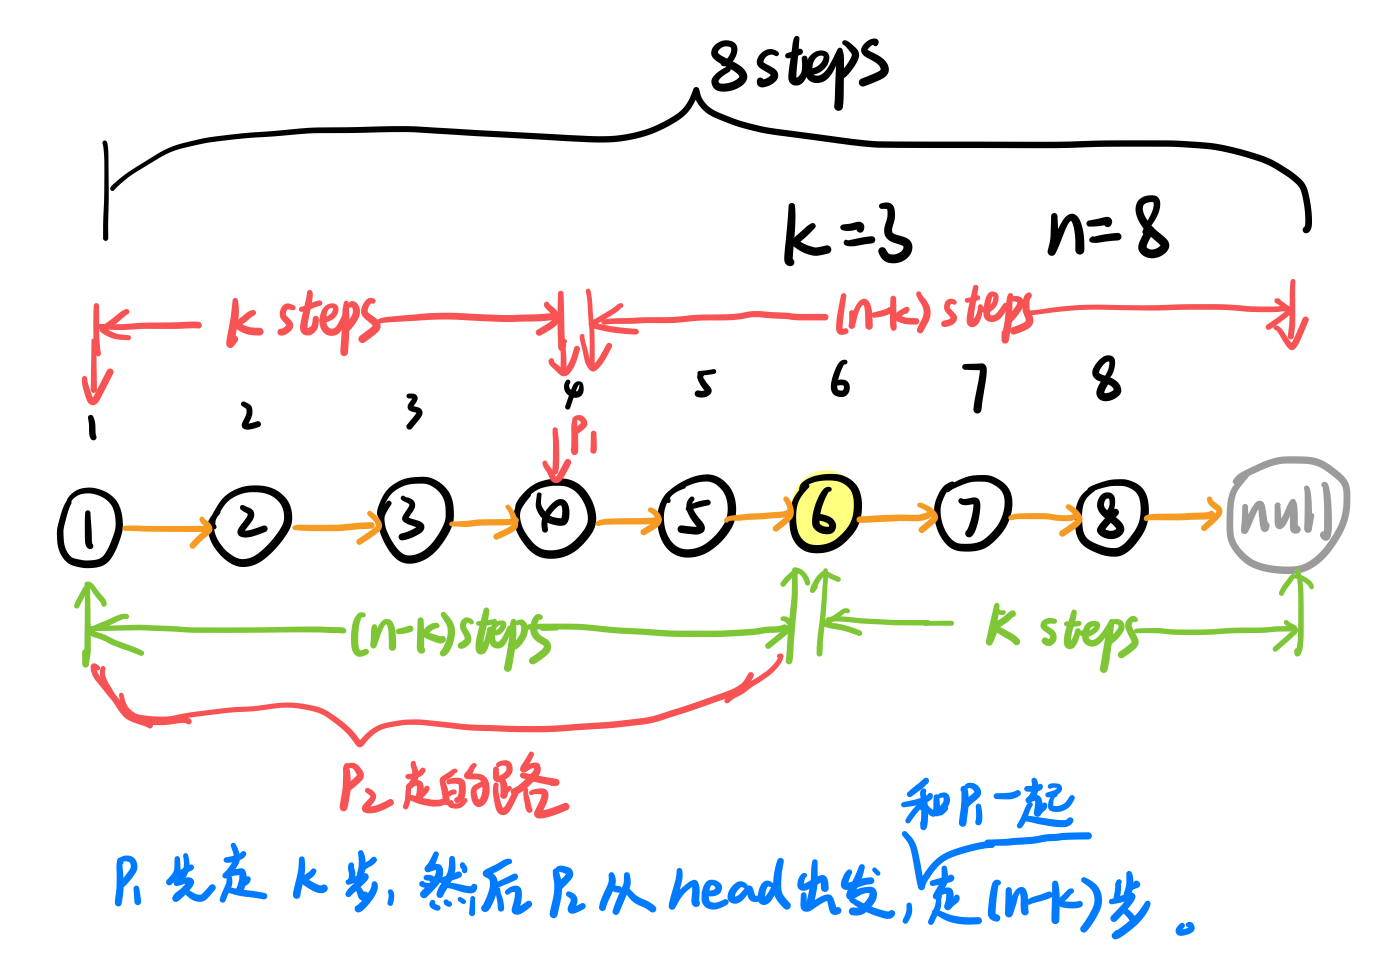 8 steps
k=3 n=8
k steps (n-k) steps
1 2 3 4 5 6 7 8
P1
1 2 3 4 5 6 7 8 null
(n-k) steps k steps
P2走的路
和P1一起
P1先走k步,然后P2从head出发,走(n-k)步。